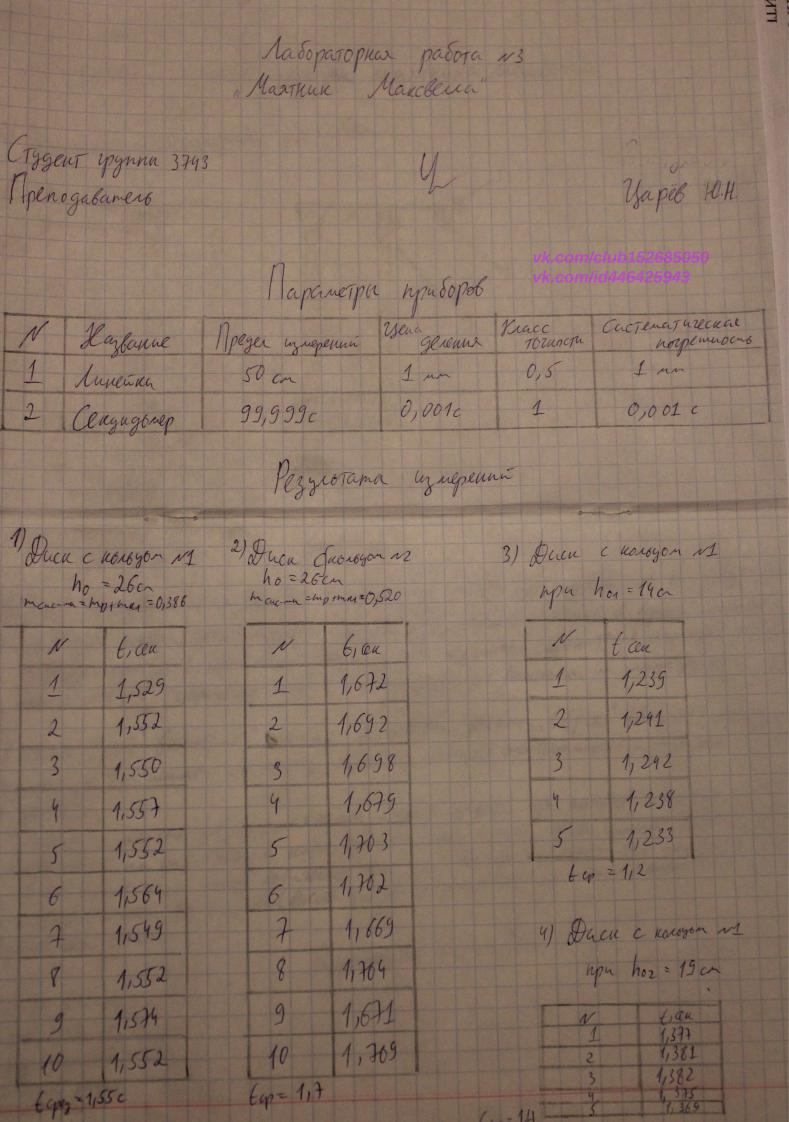 Лабораторная работа №3
"Маятник Максвела"
Студент группы 3743
Преподаватель Царёв Ю.Н.
vk.com/club152685050
vk.com/id446425943
Параметры приборов
N Название Предел измерений Цена деления Класс точности Систематическая погрешность
1 Линейка 50 см 1 мм 0,5 1 мм
2 Секундомер 99,999с 0,001с 1 0,001 с
Результаты измерений
1) Диск с кольцом №1
h₀ = 26см
= 0,386
N t, сек
1 1,529
2 1,552
3 1,550
4 1,557
5 1,552
6 1,564
7 1,549
8 1,552
9 1,574
10 1,552
tсред = 1,55с
2) Диск с кольцом №2
h₀ = 26см
= 0,520
N t, сек
1 1,672
2 1,692
3 1,698
4 1,679
5 1,703
6 1,702
7 1,669
8 1,704
9 1,671
10 1,709
tср = 1,7
3) Диск с кольцом №1
при h₀₁ = 14см
N t сек
1 1,239
2 1,241
3 1,242
4 1,238
5 1,233
tср = 1,2
4) Диск с кольцом №1
при h₀₂ = 19см
N t, сек
1 1,377
2 1,381
3 1,382
4 1,375
5 1,369